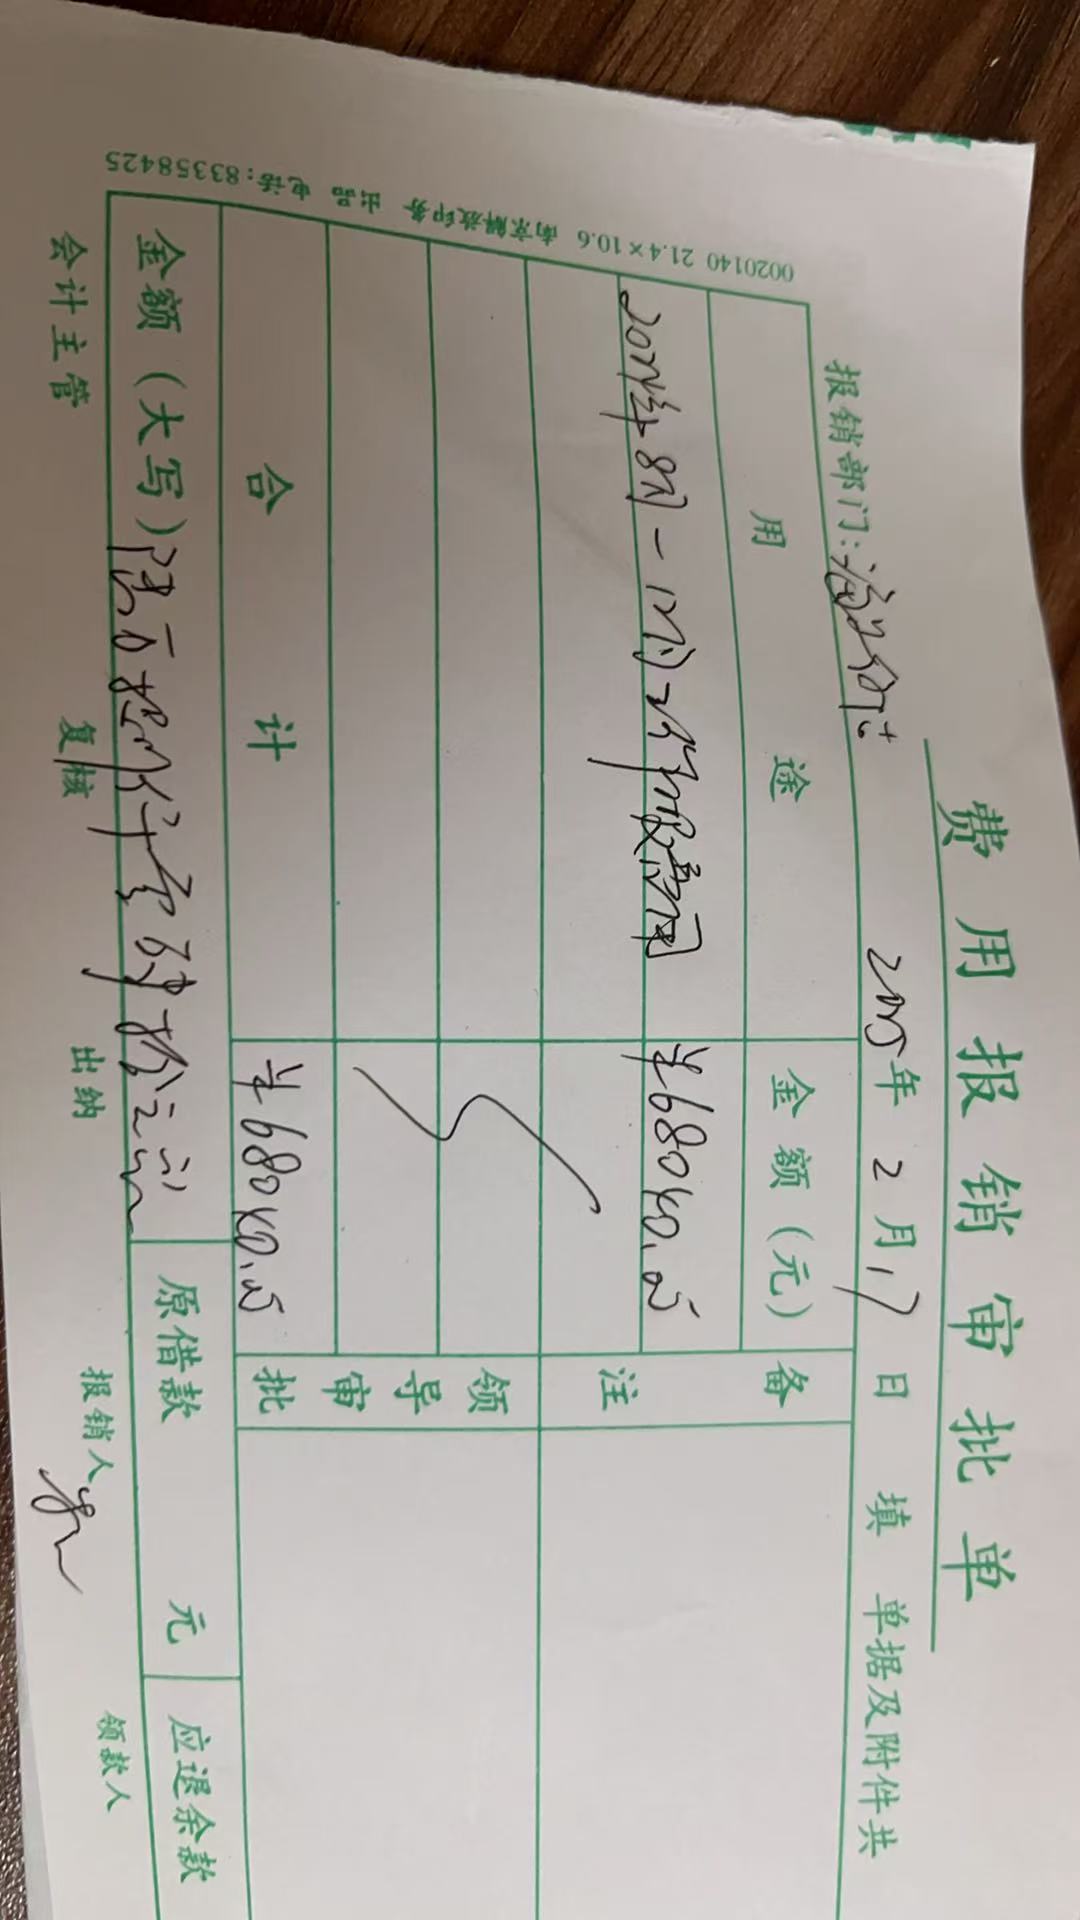 费用报销审批单
报销部门:
2025年 2月17日 填 单据及附件共
用途 金额(元) 备注
2024年8月-12月 ¥68040.00
领导审批
合计 ¥68040.00
金额(大写) 原借款 元 应退余款
会计主管 复核 出纳 报销人 领款人
0020140 21.4×10.6 南京解放印务 出品 电话:83358425